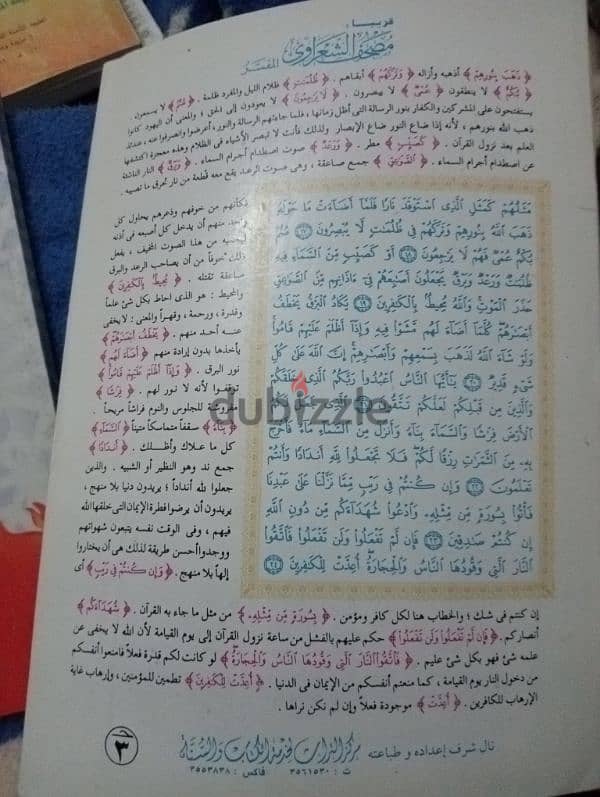 قريباً :
مصحف الشعراوى المفسّر
﴿ ذَهَبَ بِنُورِهِمْ ﴾ أذهبه وأزاله ﴿ وَتَرَكَهُمْ ﴾ أبقاهم . ﴿ ظُلُمَاتٍ ﴾ ظلام الليل والمفرد ظلمة . ﴿ صُمٌّ ﴾ لا يسمعون .
﴿ بُكْمٌ ﴾ لا ينطقون ﴿ عُمْىٌ ﴾ لا يبصرون . ﴿ لَا يَرْجِعُونَ ﴾ لا يعودون إلى الحق ، والمعنى أن اليهود كانوا
يستفتحون على المشركين والكفار بنور الرسالة التى أظل زمانها ، فلما جاءتهم الرسالة والنور ، أعرضوا وانصرفوا عنه ، عندئذ
ذهب الله بنورهم ، لأنه إذا ضاع النور ضاع الإبصار ولذلك فأنت لا تبصر الأشياء فى الظلام وهذه معجزة اكتشفها
العلم بعد نزول القرآن . ﴿ كَصَيِّبٍ ﴾ مطر . ﴿ وَرَعْدٌ ﴾ صوت اصطدام أجرام السماء . ﴿ وَبَرْقٌ ﴾ النار الناشئة
عن اصطدام أجرام السماء . ﴿ الصَّوَاعِقِ ﴾ جمع صاعقة ، وهى صوت الرعد يقع معه قطعة من نار تحرق ما تصيبه .
فكأنهم من خوفهم وذعرهم يحاول كل
واحد منهم أن يدخل كل أصبعه فى أذنه
ليحميه من هذا الصوت المخيف ، يفعل
ذلك خوفاً من أن يصاحب الرعد والبرق
صاعقة تقتله . ﴿ مُحِيطٌ بِالْكَافِرِينَ ﴾
والمحيط : هو الذى أحاط بكل شئ علماً
وقدرة ، ورحمة ، وقهراً والمعنى : لا يخفى
عنه أحد منهم . ﴿ يَخْطَفُ أَبْصَارَهُمْ ﴾
يأخذها بدون إرادة منهم ﴿ أَضَاءَ لَهُم ﴾
نور البرق . ﴿ وَإِذَا أَظْلَمَ عَلَيْهِمْ قَامُوا ﴾
توقفوا لأنه لا نور لهم . ﴿ فِرَاشًا ﴾
مفروشة للجلوس والنوم فراشاً مريحاً .
﴿ بِنَاءً ﴾ سقفاً متماسكاً متيناً ﴿ السَّمَاءِ ﴾
كل ما علاك وأظلك . ﴿ أَندَادًا ﴾
جمع ند وهو النظير أو الشبيه . والذين
جعلوا لله أنداداً ؛ يريدون دنيا بلا منهج ،
يريدون أن يرضوا فطرة الإيمان التى خلقها الله
فيهم ، وفى الوقت نفسه يتبعون شهواتهم
ووجدوا أحسن طريقة لذلك هى أن يختاروا
إلهاً بلا منهج . ﴿ وَإِن كُنتُمْ فِى رَيْبٍ ﴾ أى
مَثَلُهُمْ كَمَثَلِ الَّذِى اسْتَوْقَدَ نَارًا فَلَمَّا أَضَاءَتْ مَا حَوْلَهُ
ذَهَبَ اللَّهُ بِنُورِهِمْ وَتَرَكَهُمْ فِى ظُلُمَاتٍ لَّا يُبْصِرُونَ ١٧ صُمٌّ
بُكْمٌ عُمْىٌ فَهُمْ لَا يَرْجِعُونَ ١٨ أَوْ كَصَيِّبٍ مِّنَ السَّمَاءِ فِيهِ
ظُلُمَاتٌ وَرَعْدٌ وَبَرْقٌ يَجْعَلُونَ أَصَابِعَهُمْ فِى ءَاذَانِهِم مِّنَ الصَّوَاعِقِ
حَذَرَ الْمَوْتِ وَاللَّهُ مُحِيطٌ بِالْكَافِرِينَ ١٩ يَكَادُ الْبَرْقُ يَخْطَفُ
أَبْصَارَهُمْ كُلَّمَا أَضَاءَ لَهُم مَّشَوْا فِيهِ وَإِذَا أَظْلَمَ عَلَيْهِمْ قَامُوا
وَلَوْ شَاءَ اللَّهُ لَذَهَبَ بِسَمْعِهِمْ وَأَبْصَارِهِمْ إِنَّ اللَّهَ عَلَى كُلِّ
شَىْءٍ قَدِيرٌ ٢٠ يَا أَيُّهَا النَّاسُ اعْبُدُوا رَبَّكُمُ الَّذِى خَلَقَكُمْ
وَالَّذِينَ مِن قَبْلِكُمْ لَعَلَّكُمْ تَتَّقُونَ ٢١ الَّذِى جَعَلَ لَكُمُ
الْأَرْضَ فِرَاشًا وَالسَّمَاءَ بِنَاءً وَأَنزَلَ مِنَ السَّمَاءِ مَاءً فَأَخْرَجَ
بِهِ مِنَ الثَّمَرَاتِ رِزْقًا لَّكُمْ فَلَا تَجْعَلُوا لِلَّهِ أَندَادًا وَأَنتُمْ
تَعْلَمُونَ ٢٢ وَإِن كُنتُمْ فِى رَيْبٍ مِّمَّا نَزَّلْنَا عَلَى عَبْدِنَا
فَأْتُوا بِسُورَةٍ مِّن مِّثْلِهِ وَادْعُوا شُهَدَاءَكُم مِّن دُونِ اللَّهِ
إِن كُنتُمْ صَادِقِينَ ٢٣ فَإِن لَّمْ تَفْعَلُوا وَلَن تَفْعَلُوا فَاتَّقُوا
النَّارَ الَّتِى وَقُودُهَا النَّاسُ وَالْحِجَارَةُ أُعِدَّتْ لِلْكَافِرِينَ ٢٤
إن كنتم فى شك ؛ والخطاب هنا لكل كافر ومؤمن . ﴿ بِسُورَةٍ مِّن مِّثْلِهِ ﴾ من مثل ما جاء به القرآن . ﴿ شُهَدَاءَكُم ﴾
أنصاركم . ﴿ فَإِن لَّمْ تَفْعَلُوا وَلَن تَفْعَلُوا ﴾ حكم عليهم بالفشل من ساعة نزول القرآن إلى يوم القيامة لأن الله لا يخفى عن
علمه شئ فهو بكل شئ عليم . ﴿ فَاتَّقُوا النَّارَ الَّتِى وَقُودُهَا النَّاسُ وَالْحِجَارَةُ ﴾ لو كانت لكم قدرة فعلاً فامنعوا أنفسكم
من دخول النار يوم القيامة ، كما منعتم أنفسكم من الإيمان فى الدنيا . ﴿ أُعِدَّتْ لِلْكَافِرِينَ ﴾ تطمين للمؤمنين ، وإرهاب غاية
الإرهاب للكافرين . ﴿ أُعِدَّتْ ﴾ موجودة فعلاً وإن لم نكن نراها .
نال شرف إعداده و طباعته مركز التراث لخدمة الكتاب والسنة
ت : ٣٥٦١٥٣٠ فاكس : ٣٥٥٣٨٣٨
٣
dubizzle